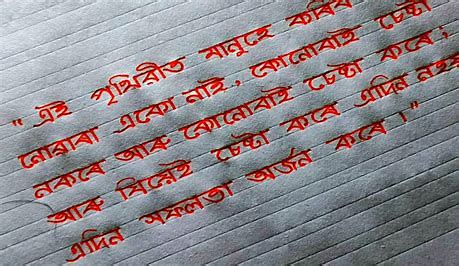 " এই পৃথিৱীত মানুহে কৰিব
নোৱাৰা একো নাই, কোনোবাই চেষ্টা
নকৰে আৰু কোনোবাই চেষ্টা কৰে;
আৰু যিয়েই চেষ্টা কৰে এদিন নহয়
এদিন সফলতা অৰ্জন কৰে।"